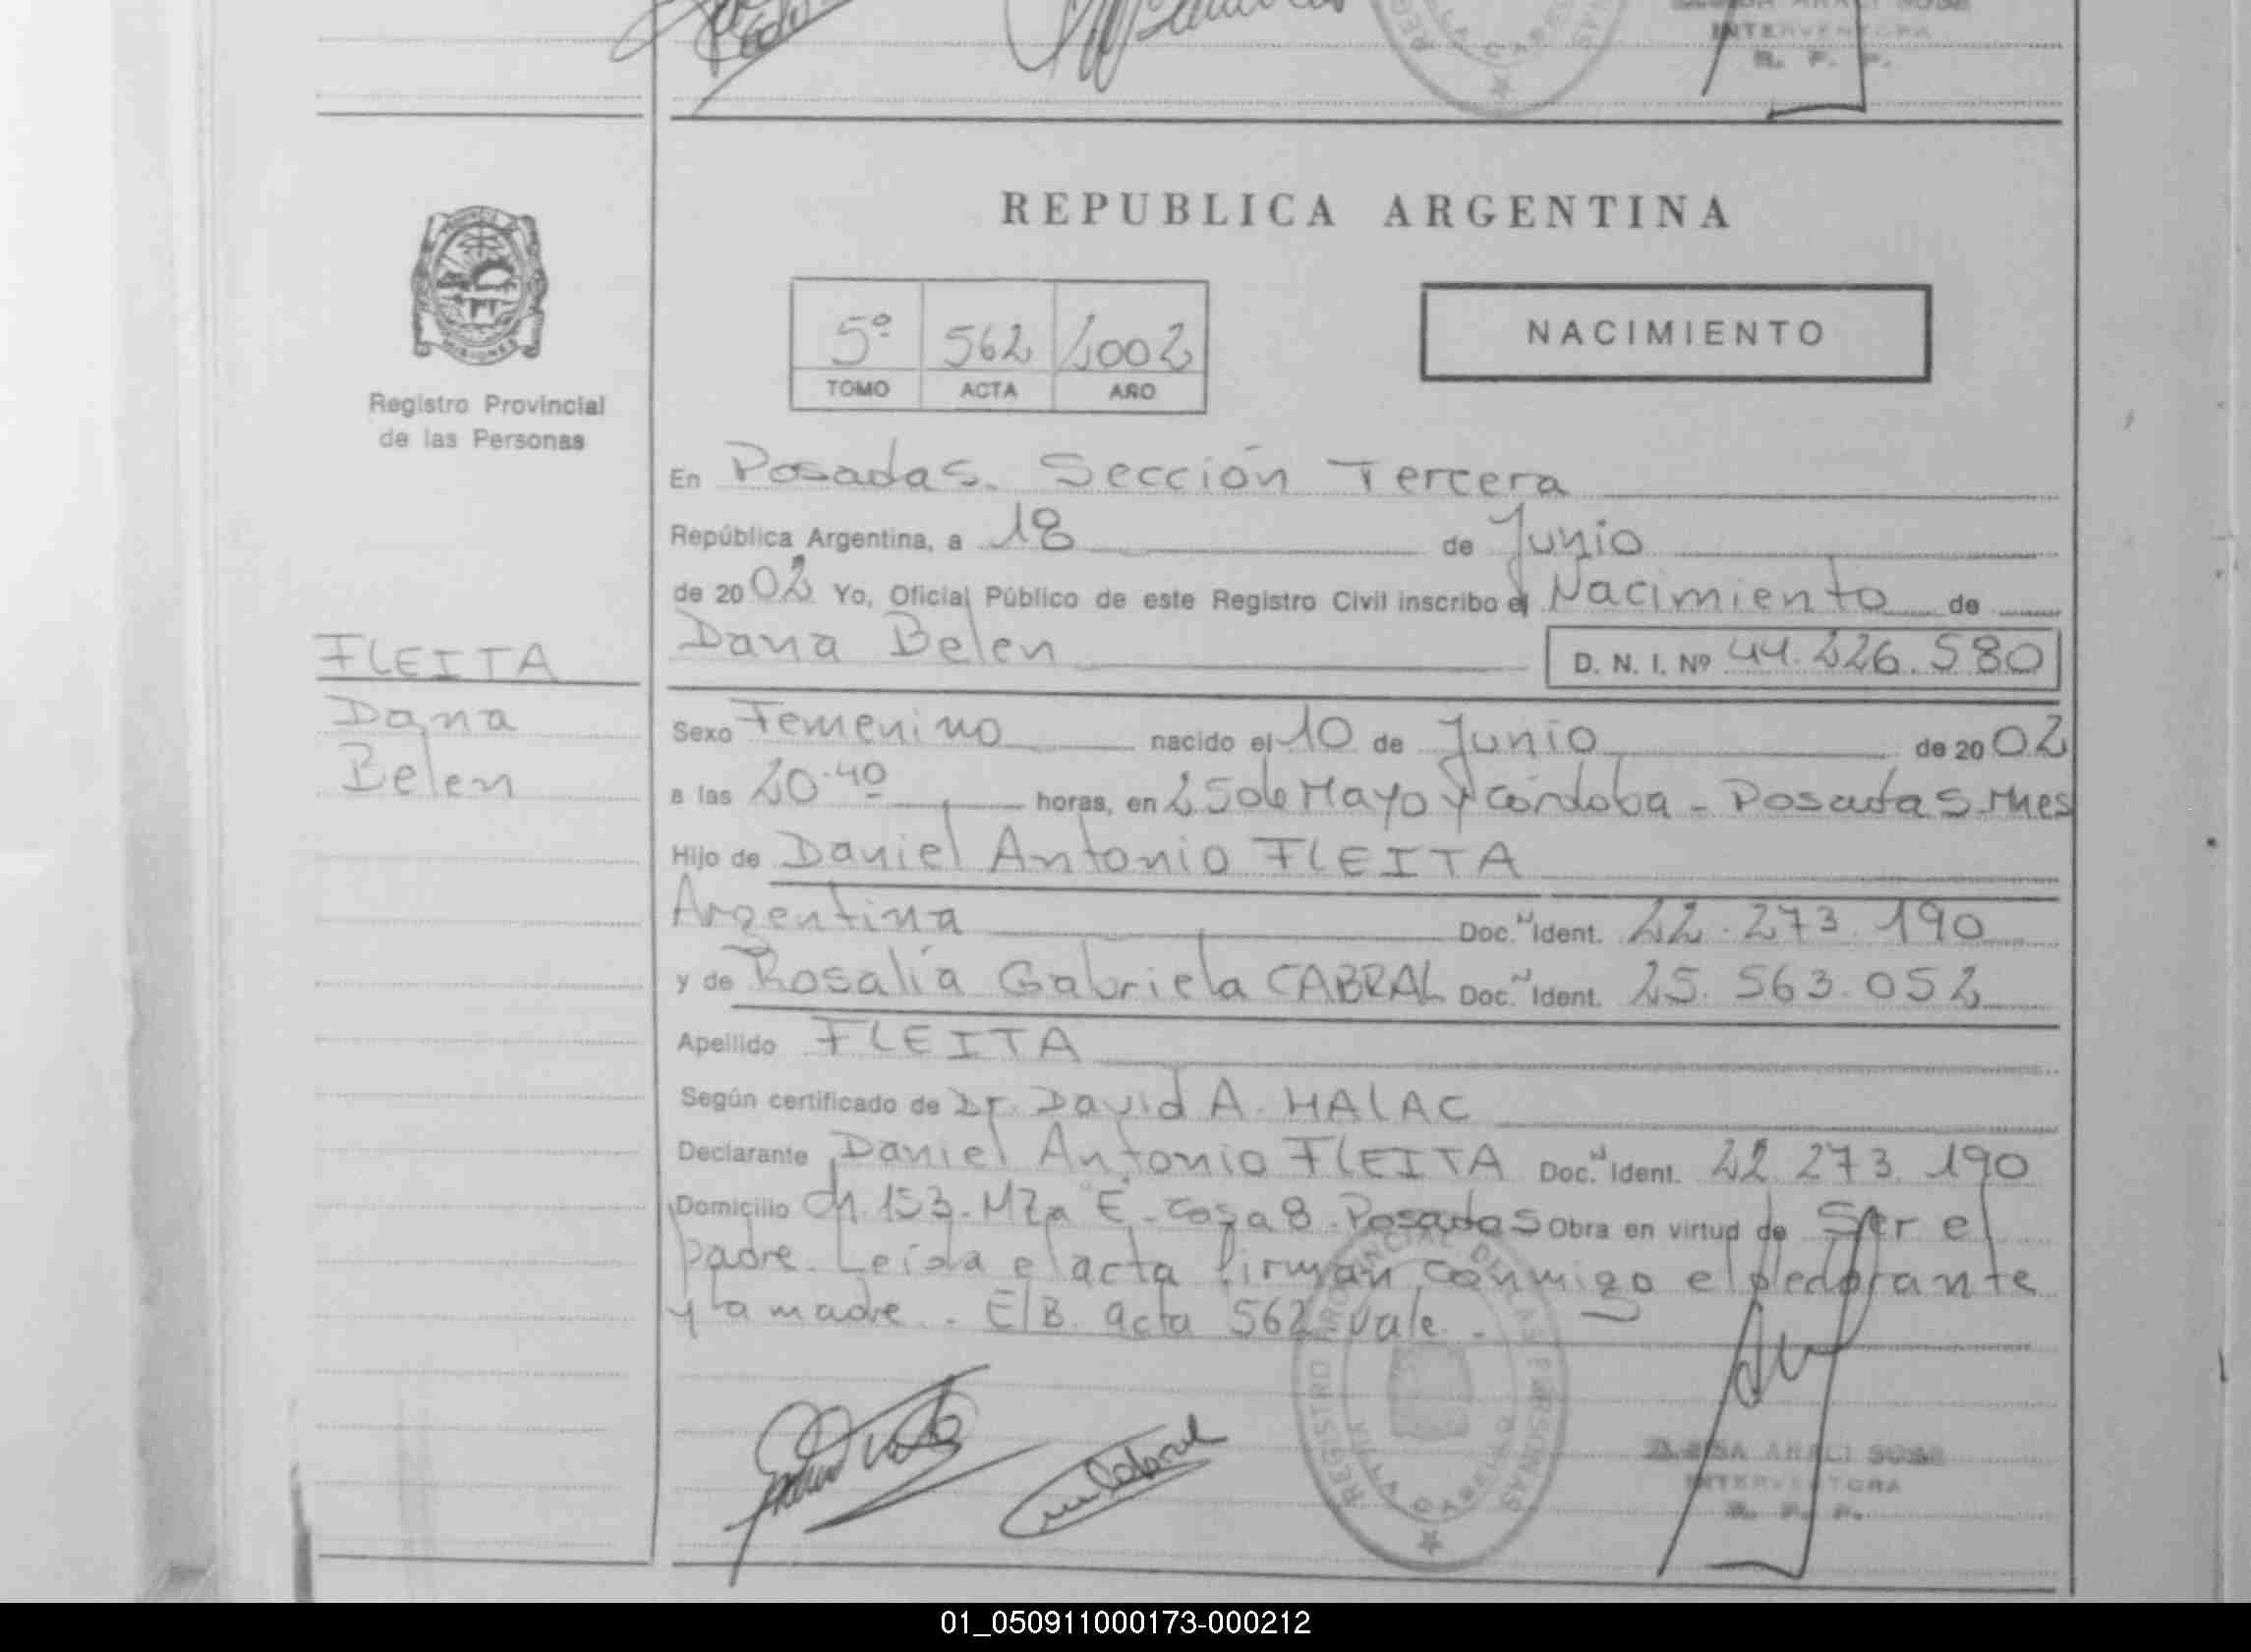 INTERVENTORA
R. P. P.
REPUBLICA ARGENTINA
MISIONES
Registro Provincial
de las Personas
5º 562 2002
TOMO ACTA AÑO
NACIMIENTO
En Posadas. Sección Tercera
República Argentina, a 18 de Junio
de 2002 Yo, Oficial Público de este Registro Civil inscribo el Nacimiento de
Dana Belen D. N. I. Nº 44.226.580
FLEITA
Dana
Belen
Sexo Femenino nacido el 10 de Junio de 2002
a las 20.40 horas, en 25 de Mayo y Córdoba - Posadas. Mnes
Hijo de Daniel Antonio FLEITA
Argentina Doc. N Ident. 22.273.190
y de Rosalía Gabriela CABRAL Doc. N Ident. 25.563.052
Apellido FLEITA
Según certificado de Dr. David A. HALAC
Declarante Daniel Antonio FLEITA Doc. N Ident. 22.273.190
Domicilio Ch. 153. Mza "E" - Casa 8. Posadas Obra en virtud de Ser el
padre. Leída el acta firman conmigo el declarante
y la madre. E/B. acta 562 vale.
REGISTRO PROVINCIAL DE LAS PERSONAS
VILLA CABELLO
ARACI SOSA
INTERVENTORA
R. P. P.
01_050911000173-000212